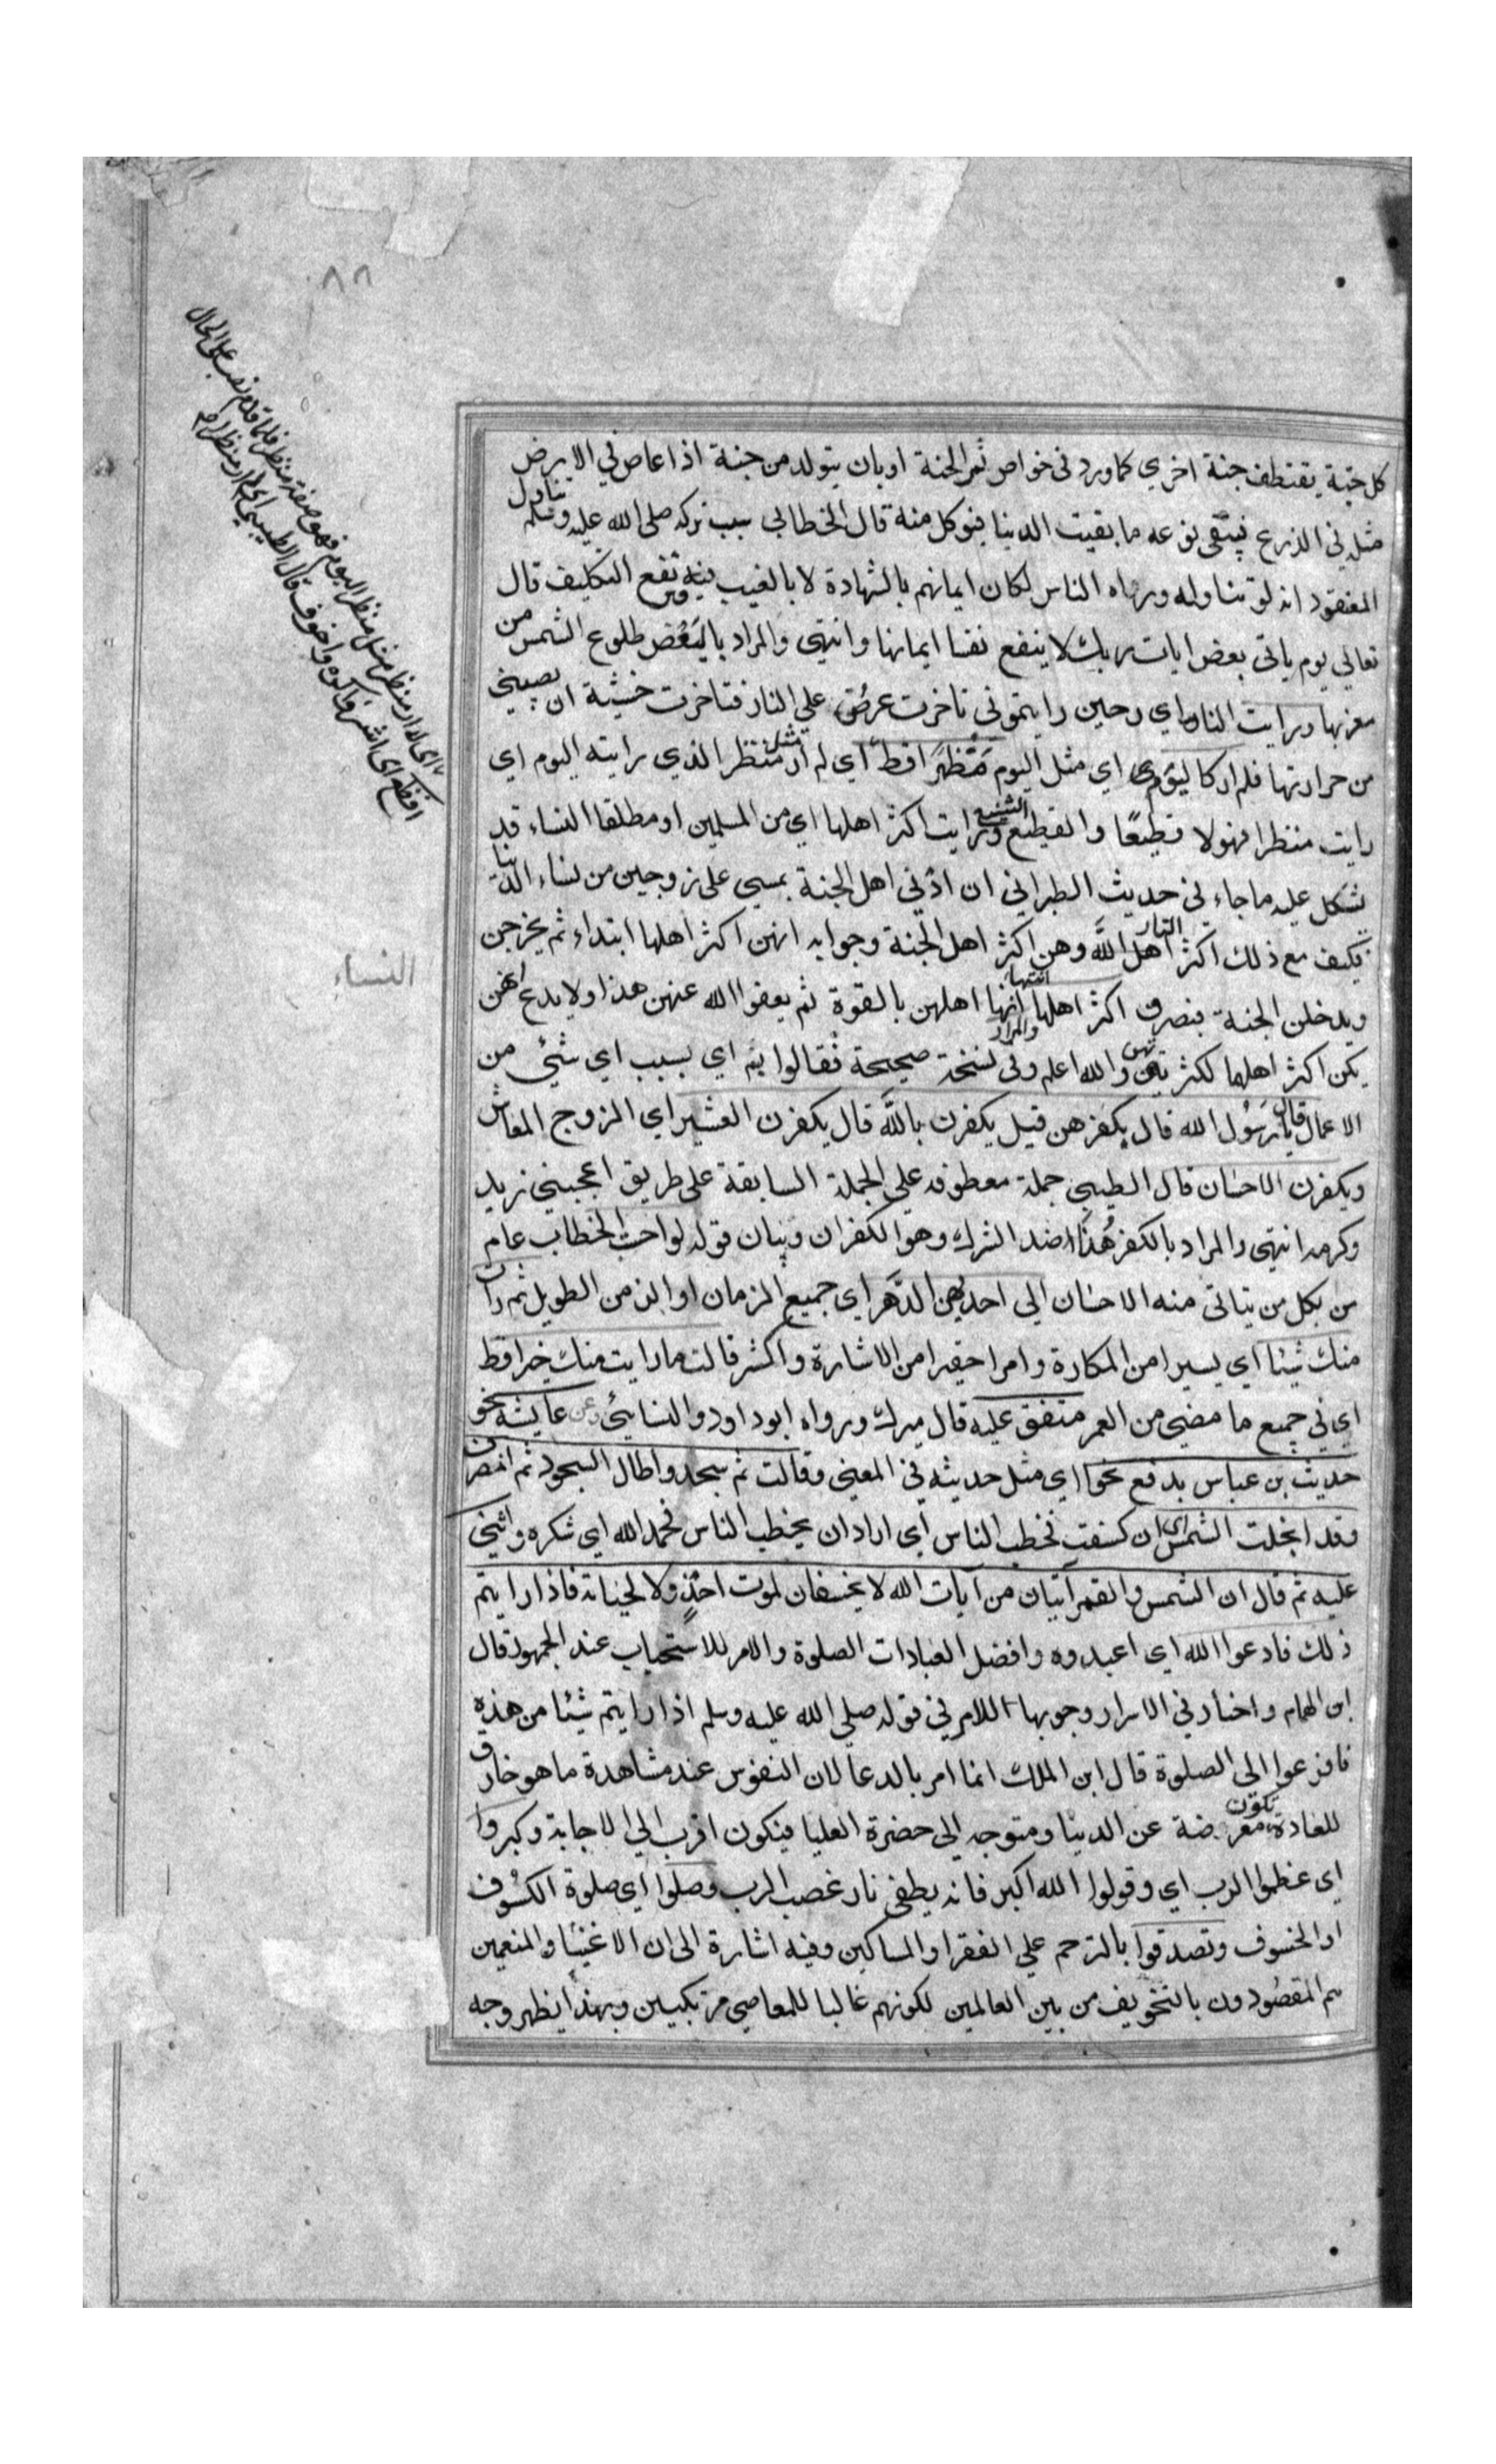 ٨٨
كل حبة يقتطف جنة اخري كما ورد في خواص ثمر الجنة او بان يتولد من جنة اذا عاص في الارض
مثله في الذرع فيبقى نوعه ما بقيت الدينا فيوكل منه قال الخطابي سبب تركه صلى الله عليه وسلم تناول
المعنقود انه لو تناوله وراه الناس لكان ايمانهم بالشهادة لا بالغيب فيرتفع التكليف قال
تعالي يوم ياتي بعض ايات ربك لا ينفع نفسا ايمانها وانتهى والمراد بالبعض طلوع الشمس من
مغربها ورايت النار اي وحين رايتموني تاخرت عرض علي النار فتاخرت خشية ان يصيبني
من حرارتها فلم ار كاليوم اي مثل اليوم منظرا قط اي لم ار مثل منظر الذي رايته اليوم اي
رايت منظرا مهولا فظيعا والفظيع الشنيع ورايت اكثر اهلها اي من المسلمين او مطلقا النساء قد
يشكل عليه ما جاء في حديث الطبراني ان ادني اهل الجنة يمسي على زوجين من نساء الدنيا
فكيف مع ذلك اكثر اهل النار وهن اكثر اهل الجنة وجوابه انهن اكثر اهلها ابتداء ثم يخرجن
ويدخلن الجنة فيصرن اكثر اهلها انتهاء والمراد انها اهلهن بالقوة ثم يعفوا الله عنهن هذا ولا بدع انهن
يكن اكثر اهلها لكثرتهن والله اعلم وفي نسخة صحيحة فقالوا بم اي بسبب اي شيئ من
الاعمال قال يا رسول الله قال بكفرهن قيل يكفرن بالله قال يكفرن العشير اي الزوج المعاش
ويكفرن الاحسان قال الطيبي جملة معطوفه علي الجملة السابقة على طريق اعجبني زيد
وكرمه انتهى والمراد بالكفر هذا ضد الشرك وهو الكفران وبيان قوله لو احسنت الخطاب عام
من بكل من يتاتى منه الاحسان الى احديهن الدهر اي جميع الزمان او الزمن الطويل ثم رات
منك شيئا اي يسيرا من المكارة وامرا حقيرا من الاشارة واكشر قالت ما رايت منك خيرا قط
اي في جميع ما مضي من العمر متفق عليه قال ميرك ورواه ابوداود والنسايئ وعن عايشة نحو
حديث بن عباس بدفع نحو اي مثل حديثه في المعنى وقالت ثم سجد واطال السجود ثم انصرف
وقد انجلت الشمس اي ان كسفت فخطب الناس اي اراد ان يخطب الناس فحمد الله اي شكره واثني
عليه ثم قال ان الشمس والقمر آيتان من آيات الله لا يخسفان لموت احد ولا لحياته فاذا رايتم
ذلك فادعوا الله اي اعبدوه وافضل العبادات الصلوة والامر للاستحباب عند الجمهور قال
ابن الهمام واختار في الاسرار وجوبها اللامر في قوله صلي الله عليه وسلم اذا رايتم شيئا من هذه
فافزعوا الى الصلوة قال ابن الملك انما امر بالدعا لان النفوس عند مشاهدة ما هو خارق
للعادة تكون معرضة عن الدينا ومتوجه الى حضرة العليا فيكون اقرب الي الاجابة وكبروا
اي عظموا الرب اي وقولوا الله اكبر فانه يطفي نار غصب الرب وصلوا اي صلوة الكسوف
او الخسوف وتصدقوا بالترحم علي الفقرا والمساكين وفيه اشارة الى ان الاغنيا والمنعمين
هم المقصودون بالتخويف من بين العالمين لكونهم غالبا للمعاصي مرتكبين وبهذا يظهر وجه
اي لم ار منظرا مثل منظر اليوم فهو صفة منظر فلما قدم نصب على الحال
افظع اي اشد واكره واخوف قال الطيبي اي لم ار منظرا
النساء